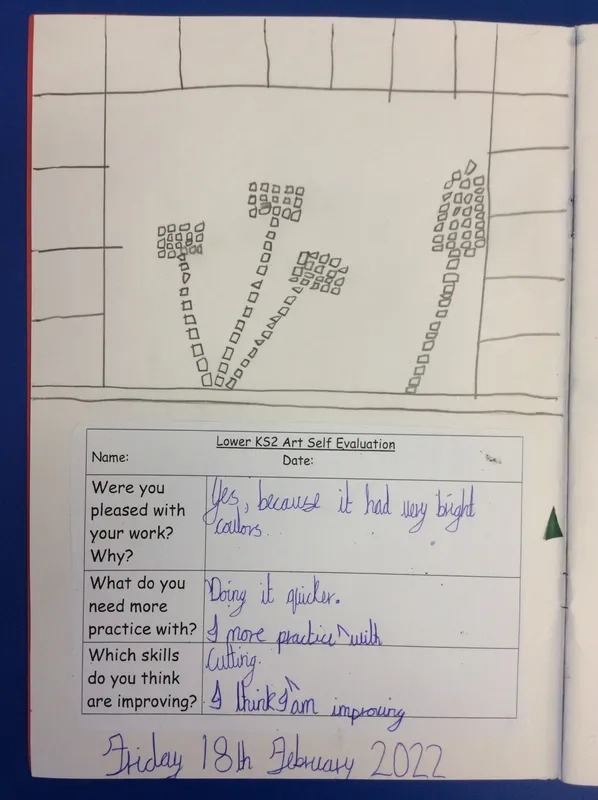 Lower KS2 Art Self Evaluation
Name: Date:
Were you
pleased with
your work?
Why?
Yes, because it had very bright
coulors.
What do you
need more
practice with?
Doing it quicker.
I more practice ^ with
Which skills
do you think
are improving?
Cutting.
I think I ^ am improving
Friday 18th February 2022